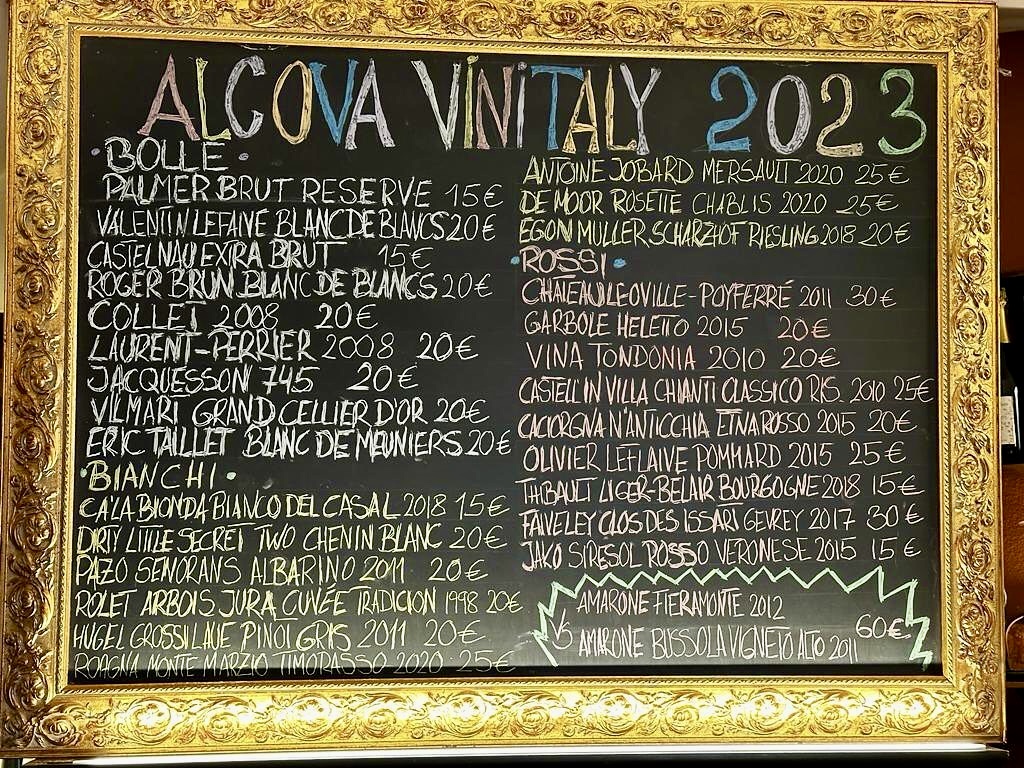 ALCOVA VINITALY 2023
• BOLLE •
PALMER BRUT RESERVE 15€
VALENTIN LEFAIVE BLANC DE BLANCS 20€
CASTELNAU EXTRA BRUT 15€
ROGER BRUN BLANC DE BLANCS 20€
COLLET 2008 20€
LAURENT-PERRIER 2008 20€
JACQUESSON 745 20€
VILMART GRAND CELLIER D'OR 20€
ERIC TAILLET BLANC DE MEUNIERS 20€
• BIANCHI •
CA'LA BIONDA BIANCO DEL CASAL 2018 15€
DIRTY LITTLE SECRET TWO CHENIN BLANC 20€
PAZO SENORANS ALBARINO 2011 20€
ROLET ARBOIS JURA CUVÉE TRADICION 1998 20€
HUGEL GROSSI LAUE PINOT GRIS 2011 20€
ROAGNA MONTE MARZIO TIMORASSO 2020 25€
ANTOINE JOBARD MERSAULT 2020 25€
DE MOOR ROSETTE CHABLIS 2020 25€
EGON MULLER SCHARZHOF RIESLING 2018 20€
• ROSSI •
CHATEAU LEOVILLE-POYFERRÉ 2011 30€
GARBOLE HELETTO 2015 20€
VINA TONDONIA 2010 20€
CASTELL'IN VILLA CHIANTI CLASSICO RIS. 2010 25€
CACIORGNA N'ANTICCHIA ETNA ROSSO 2015 20€
OLIVIER LEFLAIVE POMMARD 2015 25€
THIBAULT LIGER-BELAIR BOURGOGNE 2018 15€
FAIVELEY CLOS DES ISSART GEVREY 2017 30€
JAKO SIRESOL ROSSO VERONESE 2015 15€
AMARONE FIERAMONTE 2012
VS 60€
AMARONE BUSSOLA VIGNETO ALTO 2011